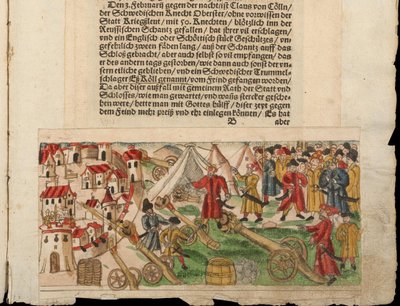 Den 3. Februarij gegen der nacht/ist Claus von Cölln/
der Schwedischen Knecht Oberster/ohne vorwissen der
Statt Kriegsleut/mit 50. Knechten/ blötzlich inn der
Reussischen Schantz gefallen/ hat ihrer vil erschlagen/
und ein Englisch oder Schöttisch stück Geschützes/ un-
gefehrlich zween säden lang/ auß der Schantz auff das
Schloß gebracht/ aber auch selbst so vil empfangen/ das
er des andern tags gestorben/wie dann auch sonst der un-
sern etliche geblieben/ und ein Schwedischer Trummel-
schlager Elß Köll genannt/ vom Feind gefangen worden/
Da aber diser auffall mit gemeinem Rath der Statt und
Schlosses/wie man gewartet/und wans stercker gesche-
hen were/hette man mit Gottes hülff/ diser zeyt gegen
dem Feind mehr preyß und ehr einlegen können/ Es hat
B aber